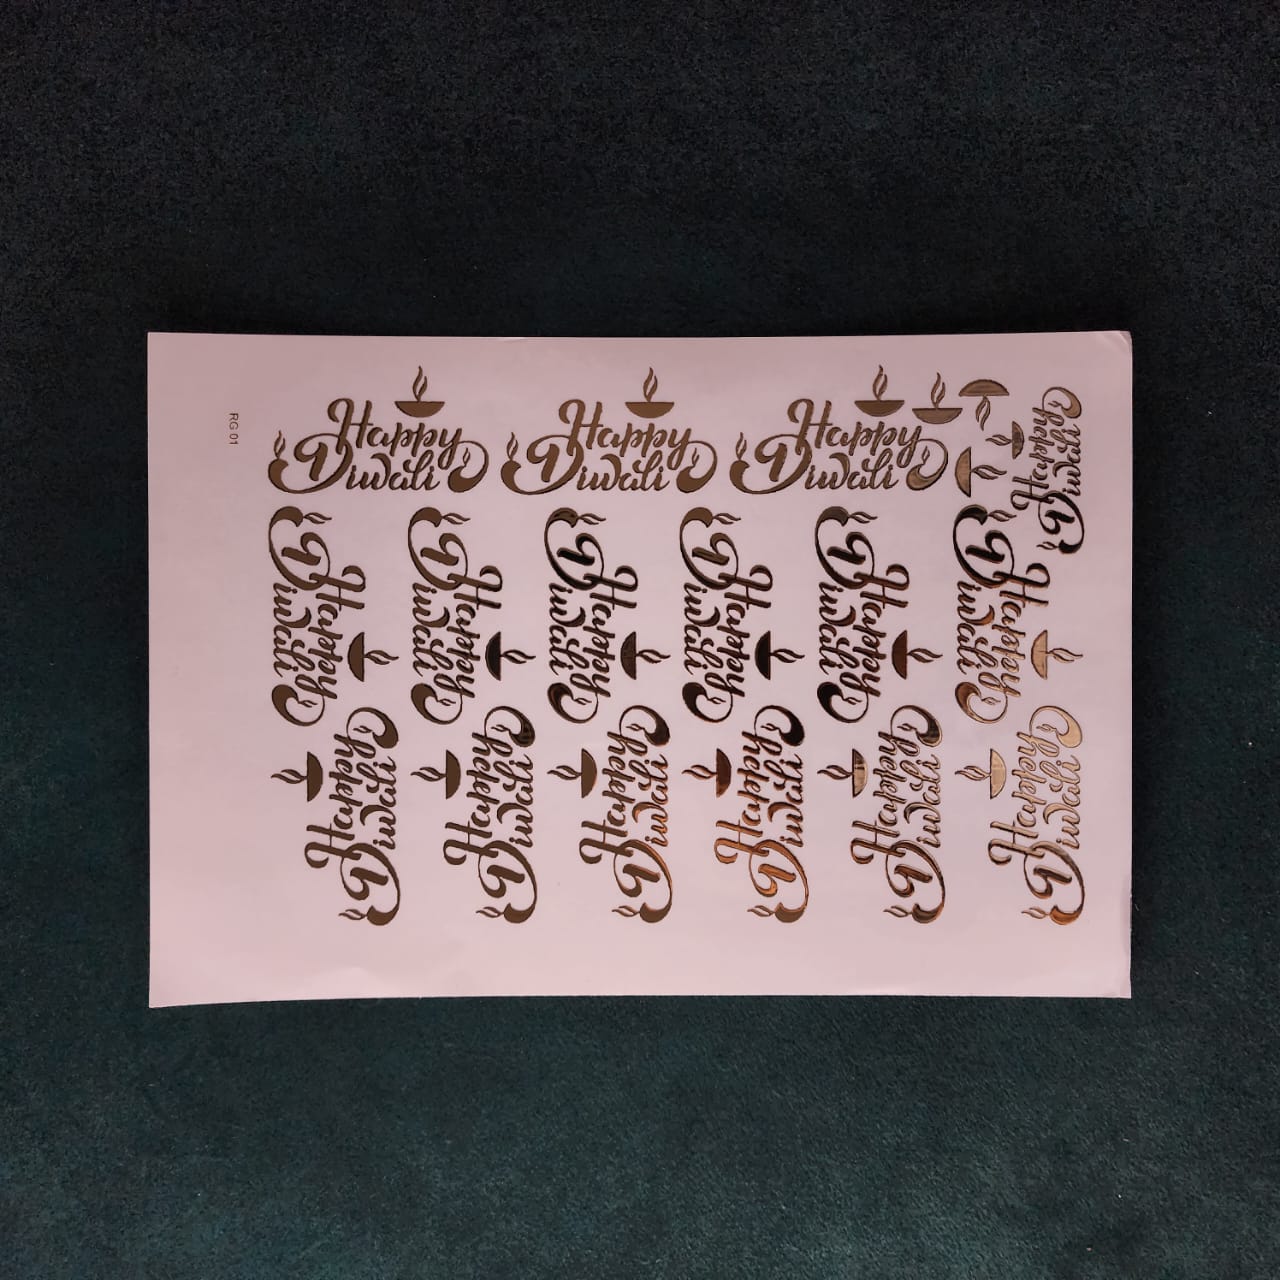 Happy
Diwali
Happy
Diwali
Happy
Diwali
Happy
Diwali
Happy
Diwali
Happy
Diwali
Happy
Diwali
Happy
Diwali
Happy
Diwali
Happy
Diwali
Happy
Diwali
Happy
Diwali
Happy
Diwali
Happy
Diwali
Happy
Diwali
Happy
Diwali
RG 01